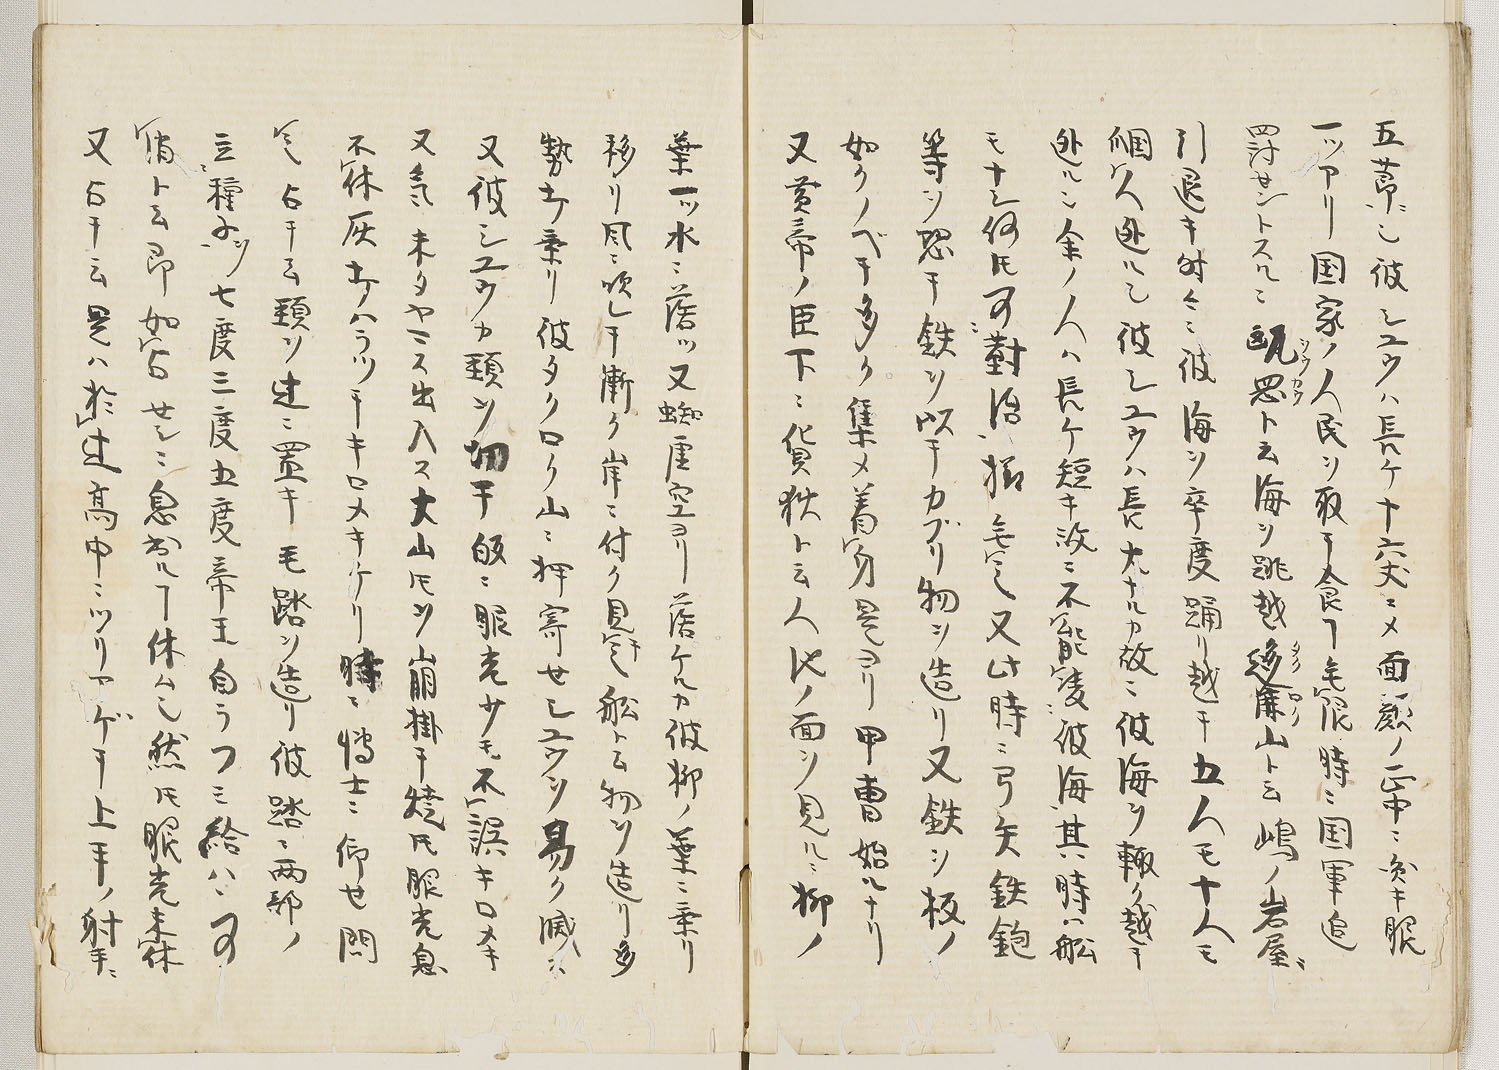 五節ニシ彼シユウハ長ケ十六丈ニメ面顔ノ正中ニ灸キ眼
一ツアリ国家ノ人民ヲ取テ食フ无限時ニ国軍追
罸セントスルニ 忍ト云海ヲ跳越 山ト云嶋ノ岩屋ニ
引退キ射々ニ彼海ヲ卒度踊リ越テ五人モ十人モ
個人迯ルシ彼シユウハ長大ナルカ故ニ彼海ヲ輙ク越テ
迯ルニ余ノ人ハ長ケ短キ故ニ不能凌彼海其時ハ舩
モナシ何モ可對治 様無シ又此時ニ弓矢鉄鉋
等ヲ恐テ鉄ヲ以テカブリ物ヲ造リ又鉄ヲ板ノ
如クノベテ多ク集メ着身是ヨリ甲曹始ルナリ
又黄帝ノ臣下ニ貨狄ト云人池ノ面ヲ見ルニ柳ノ
葉一ツ水ニ落ツ又蜘虚空ヨリ落ケルカ彼柳ノ葉ニ乗リ
移リ風ニ吹レテ漸ク岸ニ付ク見テ舩ト云物ヲ造リ多
勢打乗リ彼タクロク山ニ押寄セシユウヲ易ク滅ス
又彼シユウカ頸ヲ切テ 皈ニ眼光少モ不誤キロメキ
又気未タヤマス出入ス大山トモヲ崩掛テ焼トモ眼光息
不休灰打ハラツテキロメキケリ時ニ博士ニ仰せ問
占テ云頸ヲ辻ニ置キ毛踏ヲ造リ彼踏ニ両部ノ
三種子ヲ七度三度五度帝王自ラフミ給ハヽ可
消ト云即如占せシニ息出ルフ休ムシ然トモ眼光未休
又占テ云是ハ於辻高中ニツリアゲテ上手ノ射手ニ